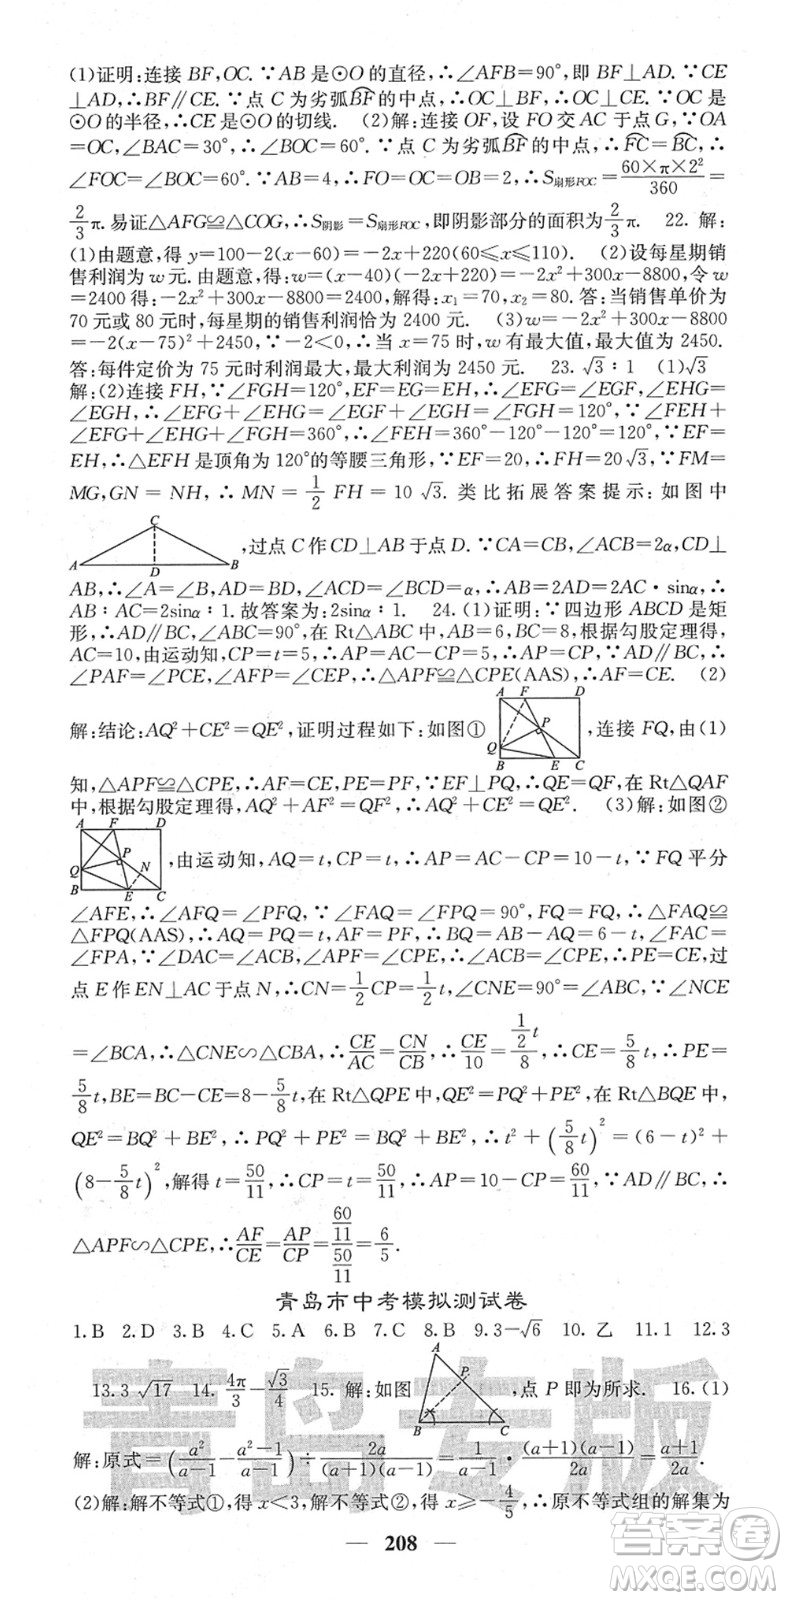 (1)证明:连接 BF,OC.∵AB 是⊙O 的直径,∴∠AFB=90°,即 BF⊥AD.∵CE
⊥AD,∴BF∥CE.∵点 C 为劣弧BF的中点,∴OC⊥BF,∴OC⊥CE.∵OC 是
⊙O 的半径,∴CE 是⊙O 的切线. (2)解:连接 OF,设 FO 交 AC 于点 G,∵OA
=OC,∠BAC=30°,∴∠BOC=60°.∵点 C 为劣弧BF的中点,∴FC=BC,∴
∠FOC=∠BOC=60°.∵AB=4,∴FO=OC=OB=2,∴S扇形FOC=60×π×2²/360=
2/3π.易证△AFG≌△COG,∴S阴影=S扇形FOC,即阴影部分的面积为2/3π. 22. 解:
(1)由题意,得 y=100-2(x-60)=-2x+220(60≤x≤110). (2)设每星期销
售利润为 w 元.由题意,得:w=(x-40)(-2x+220)=-2x²+300x-8800,令 w
=2400 得:-2x²+300x-8800=2400,解得:x₁=70,x₂=80.答:当销售单价为
70 元或 80 元时,每星期的销售利润恰为 2400 元. (3)w=-2x²+300x-8800
=-2(x-75)²+2450,∵-2<0,∴当 x=75 时,w 有最大值,最大值为 2450.
答:每件定价为 75 元时利润最大,最大利润为 2450 元. 23. √3∶1 (1)√3
解:(2)连接 FH,∵∠FGH=120°,EF=EG=EH,∴∠EFG=∠EGF,∠EHG=
∠EGH,∴∠EFG+∠EHG=∠EGF+∠EGH=∠FGH=120°,∵∠FEH+
∠EFG+∠EHG+∠FGH=360°,∴∠FEH=360°-120°-120°=120°,∵EF=
EH,∴△EFH 是顶角为 120°的等腰三角形,∵EF=20,∴FH=20√3,∵FM=
MG,GN=NH,∴MN=1/2 FH=10√3. 类比拓展答案提示:如图中
C
A D B
,过点 C 作 CD⊥AB 于点 D.∵CA=CB,∠ACB=2α,CD⊥
AB,∴∠A=∠B,AD=BD,∠ACD=∠BCD=α,∴AB=2AD=2AC·sinα,∴
AB∶AC=2sinα∶1.故答案为:2sinα∶1. 24. (1)证明:∵四边形 ABCD 是矩
形,∴AD∥BC,∠ABC=90°,在 Rt△ABC 中,AB=6,BC=8,根据勾股定理得,
AC=10,由运动知,CP=t=5,∴AP=AC-CP=5,∴AP=CP,∵AD∥BC,∴
∠PAF=∠PCE,∠AFP=∠CEP,∴△APF≌△CPE(AAS),∴AF=CE. (2)
A F D
P
Q
B E C
解:结论:AQ²+CE²=QE²,证明过程如下:如图① ,连接 FQ,由(1)
知,△APF≌△CPE,∴AF=CE,PE=PF,∵EF⊥PQ,∴QE=QF,在 Rt△QAF
中,根据勾股定理得,AQ²+AF²=QF²,∴AQ²+CE²=QE². (3)解:如图②
A F D
P
Q N
B E C
,由运动知,AQ=t,CP=t,∴AP=AC-CP=10-t,∵FQ 平分
∠AFE,∴∠AFQ=∠PFQ,∵∠FAQ=∠FPQ=90°,FQ=FQ,∴△FAQ≌
△FPQ(AAS),∴AQ=PQ=t,AF=PF,∴BQ=AB-AQ=6-t,∠FAC=
∠FPA,∵∠DAC=∠ACB,∠APF=∠CPE,∴∠ACB=∠CPE,∴PE=CE,过
点 E 作 EN⊥AC 于点 N,∴CN=1/2CP=1/2t,∠CNE=90°=∠ABC,∵∠NCE
=∠BCA,∴△CNE∽△CBA,∴CE/AC=CN/CB,∴CE/10=(1/2t)/8,∴CE=5/8t,∴PE=
5/8t,BE=BC-CE=8-5/8t,在 Rt△QPE 中,QE²=PQ²+PE²,在 Rt△BQE 中,
QE²=BQ²+BE²,∴PQ²+PE²=BQ²+BE²,∴t²+(5/8t)²=(6-t)²+
(8-5/8t)²,解得 t=50/11,∴CP=t=50/11,∴AP=10-CP=60/11,∵AD∥BC,∴
△APF∽△CPE,∴AF/CE=AP/CP=(60/11)/(50/11)=6/5.
青岛市中考模拟测试卷
1.B 2.D 3.B 4.C 5.A 6.B 7.C 8.B 9.3-√6 10. 乙 11.1 12.3
13.3√17 14. 4π/3-√3/4 15. 解:如图 ,点 P 即为所求. 16.(1)
A
P
B C
解:原式=(a²/(a-1)-(a²-1)/(a-1))÷2a/((a+1)(a-1))=1/(a-1)·(a+1)(a-1)/2a=(a+1)/2a.
(2)解:解不等式①,得 x<3,解不等式②,得 x≥-4/5,∴原不等式组的解集为
— 208 —
青岛专版
答案圈
MXQE.COM